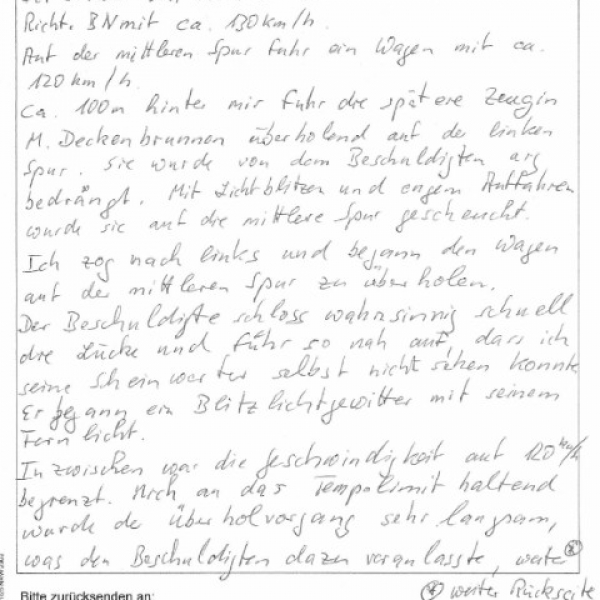 Richt. BN mit ca. 130 km/h.
Auf der mittleren Spur fuhr ein Wagen mit ca.
120 km/h.
Ca. 100m hinter mir fuhr die spätere Zeugin
M. Deckenbrunnen überholend auf der linken
Spur. Sie wurde von dem Beschuldigten arg
bedrängt. Mit Lichtblitzen und engem Auffahren
wurde sie auf die mittlere Spur gescheucht.
Ich zog nach links und begann den Wagen
auf der mittleren Spur zu überholen.
Der Beschuldigte schloss wahnsinnig schnell
die Lücke und fuhr so nah auf, dass ich
seine Scheinwerfer selbst nicht sehen konnte
Er begann ein Blitzlichtgewitter mit seinem
Fernlicht.
Inzwischen war die Geschwindigkeit auf 120 km/h
begrenzt. Mich an das Tempolimit haltend
wurde der Überholvorgang sehr langsam,
was den Beschuldigten dazu veranlasste, weiter
Bitte zurücksenden an:
weiter Rückseite